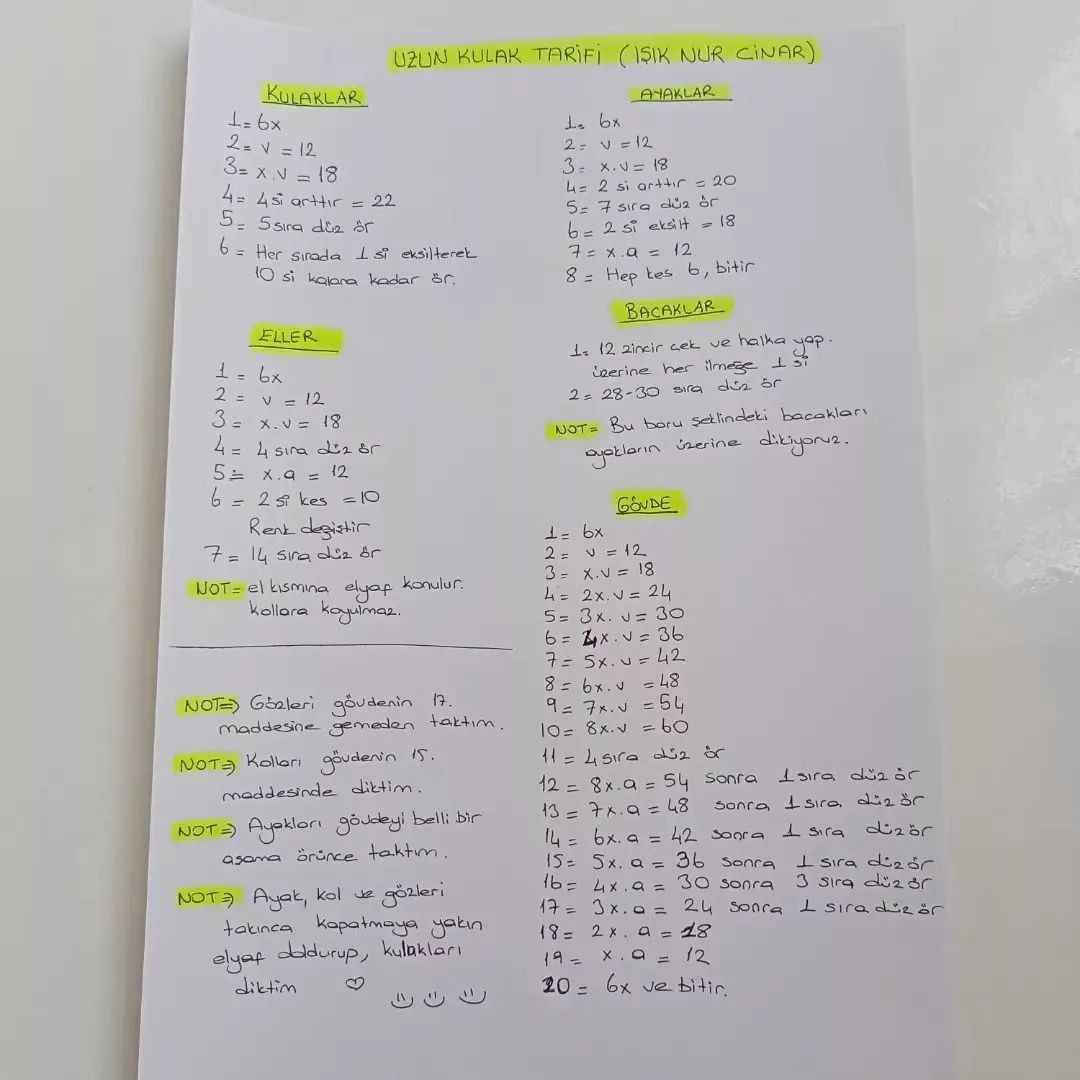 UZUN KULAK TARİFİ (IŞIK NUR CİNAR)
KULAKLAR
1= 6x
2= v = 12
3= x.v = 18
4= 4 si arttır = 22
5= 5 sıra düz ör
6= Her sırada 1 si eksilterek
10 si kalana kadar ör.
ELLER
1= 6x
2= v = 12
3= x.v = 18
4= 4 sıra düz ör
5= x.a = 12
6= 2 si kes = 10
Renk değiştir
7= 14 sıra düz ör
NOT= el kısmına elyaf konulur.
kollara koyulmaz.
NOT=> Gözleri gövdenin 17.
maddesine gemeden taktım.
NOT=> Kolları gövdenin 15.
maddesinde diktim.
NOT=> Ayakları gövdeyi belli bir
aşama örünce taktım.
NOT=> Ayak, kol ve gözleri
takınca kapatmaya yakın
elyaf doldurup, kulakları
diktim ♡ :) :) :)
AYAKLAR
1= 6x
2= v = 12
3= x.v = 18
4= 2 si arttır = 20
5= 7 sıra düz ör
6= 2 si eksilt = 18
7= x.a = 12
8= Hep kes 6, bitir
BACAKLAR
1= 12 zincir çek ve halka yap.
üzerine her ilmeğe 1 si
2= 28-30 sıra düz ör
NOT= Bu boru şeklindeki bacakları
ayakların üzerine dikiyoruz.
GÖVDE
1= 6x
2= v = 12
3= x.v = 18
4= 2x.v = 24
5= 3x.v = 30
6= 4x.v = 36
7= 5x.v = 42
8= 6x.v = 48
9= 7x.v = 54
10= 8x.v = 60
11= 4 sıra düz ör
12= 8x.a = 54 sonra 1 sıra düz ör
13= 7x.a = 48 sonra 1 sıra düz ör
14= 6x.a = 42 sonra 1 sıra düz ör
15= 5x.a = 36 sonra 1 sıra düz ör
16= 4x.a = 30 sonra 3 sıra düz ör
17= 3x.a = 24 sonra 1 sıra düz ör
18= 2x.a = 18
19= x.a = 12
20= 6x ve bitir.